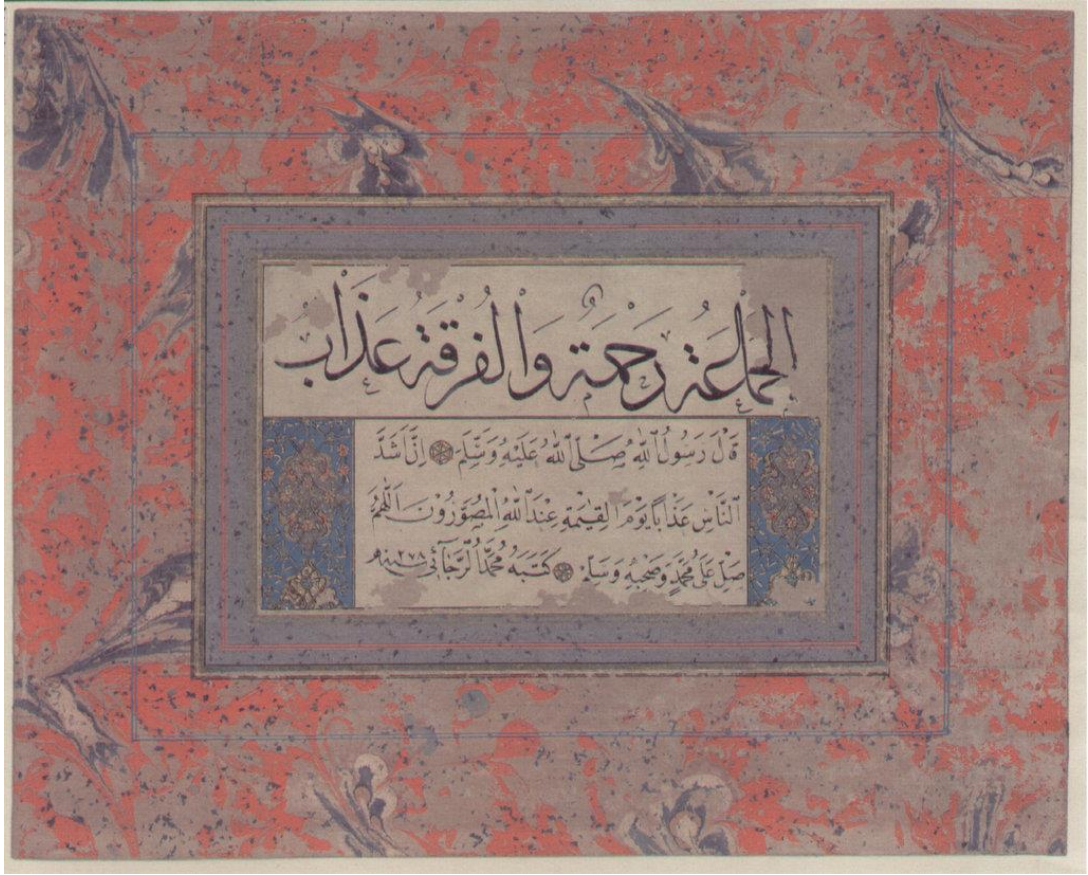 الجماعة رَحْمَةٌ وَالْفُرْقَةُ عَذَابٌ
قَالَ رَسُولُ اللّٰهِ صَلَّى اللّٰهُ عَلَيْهِ وَسَلَّمَ اِنَّ اَشَدَّ
النَّاسِ عَذَابًا يَوْمَ الْقِيٰمَةِ عِنْدَ اللّٰهِ الْمُصَوِّرُوْنَ اَللّٰهُمَّ
صَلِّ عَلٰى مُحَمَّدٍ وَصَحْبِهِ وَسَلِّمْ كَتَبَهُ مُحَمَّد الرَّجَائِي